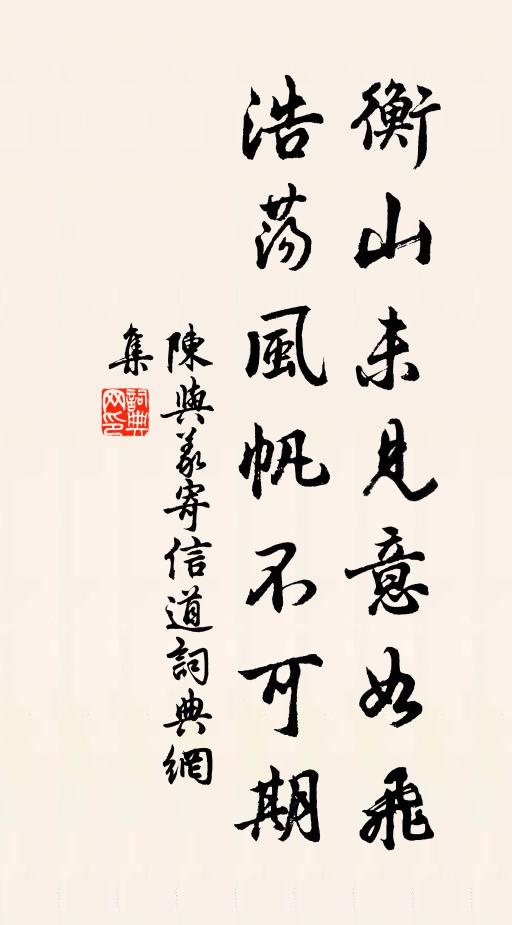 衡山未見意如飛
浩荡風帆不可期
陳與義寄信道詞典網
集
詞典
网印